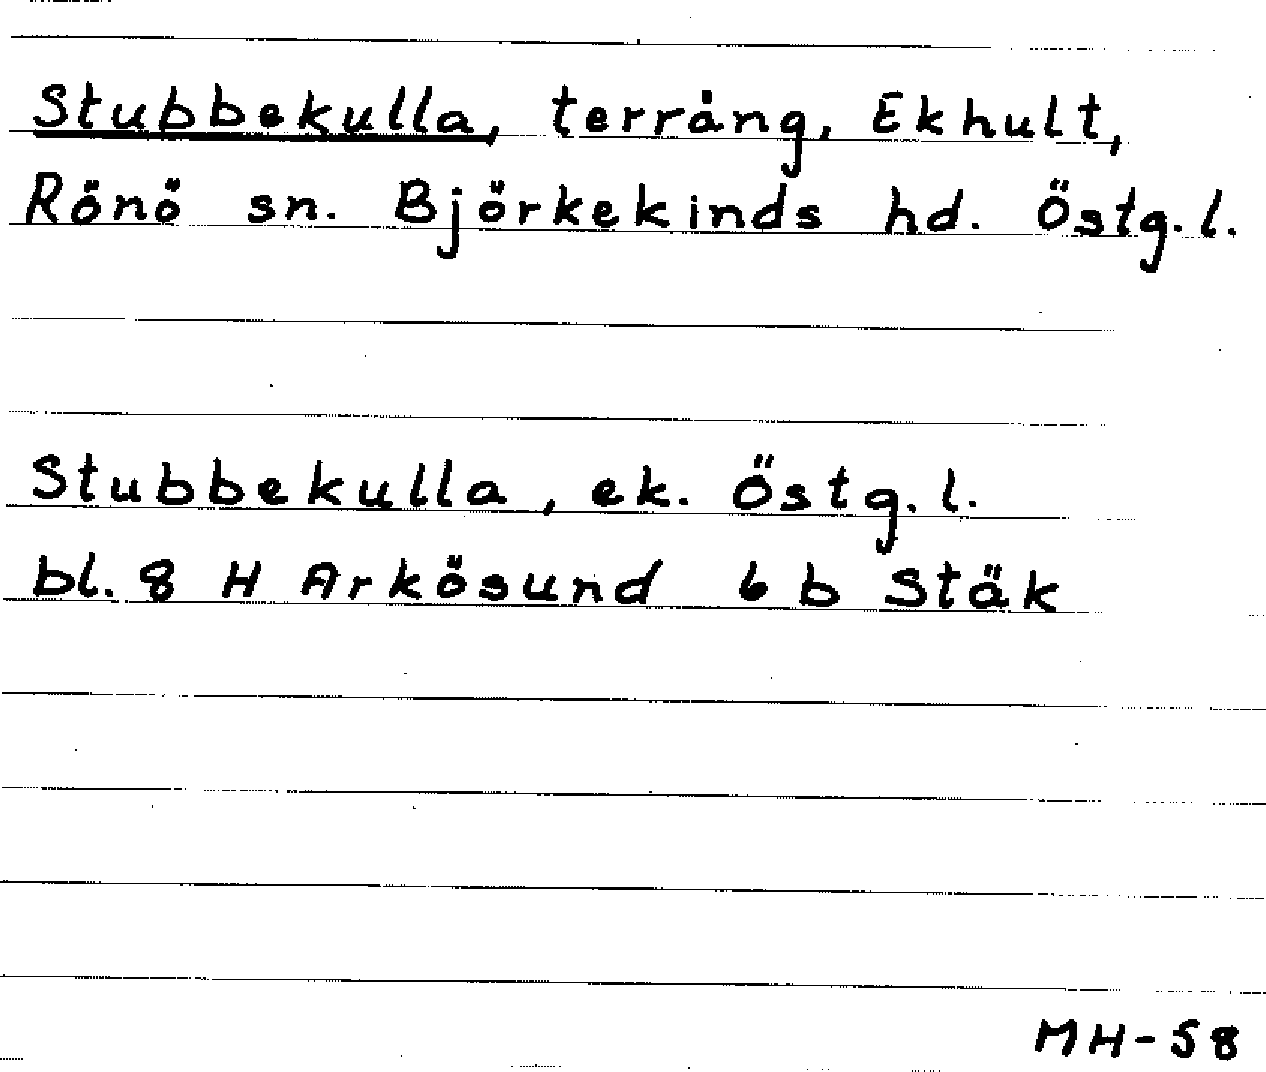 Stubbekulla, terräng, Ekhult,
Rönö sn. Björkekinds hd. Östg.l.
Stubbekulla, ek. Östg.l.
bl. 8 H Arkösund 6 b Stäk
MH-58